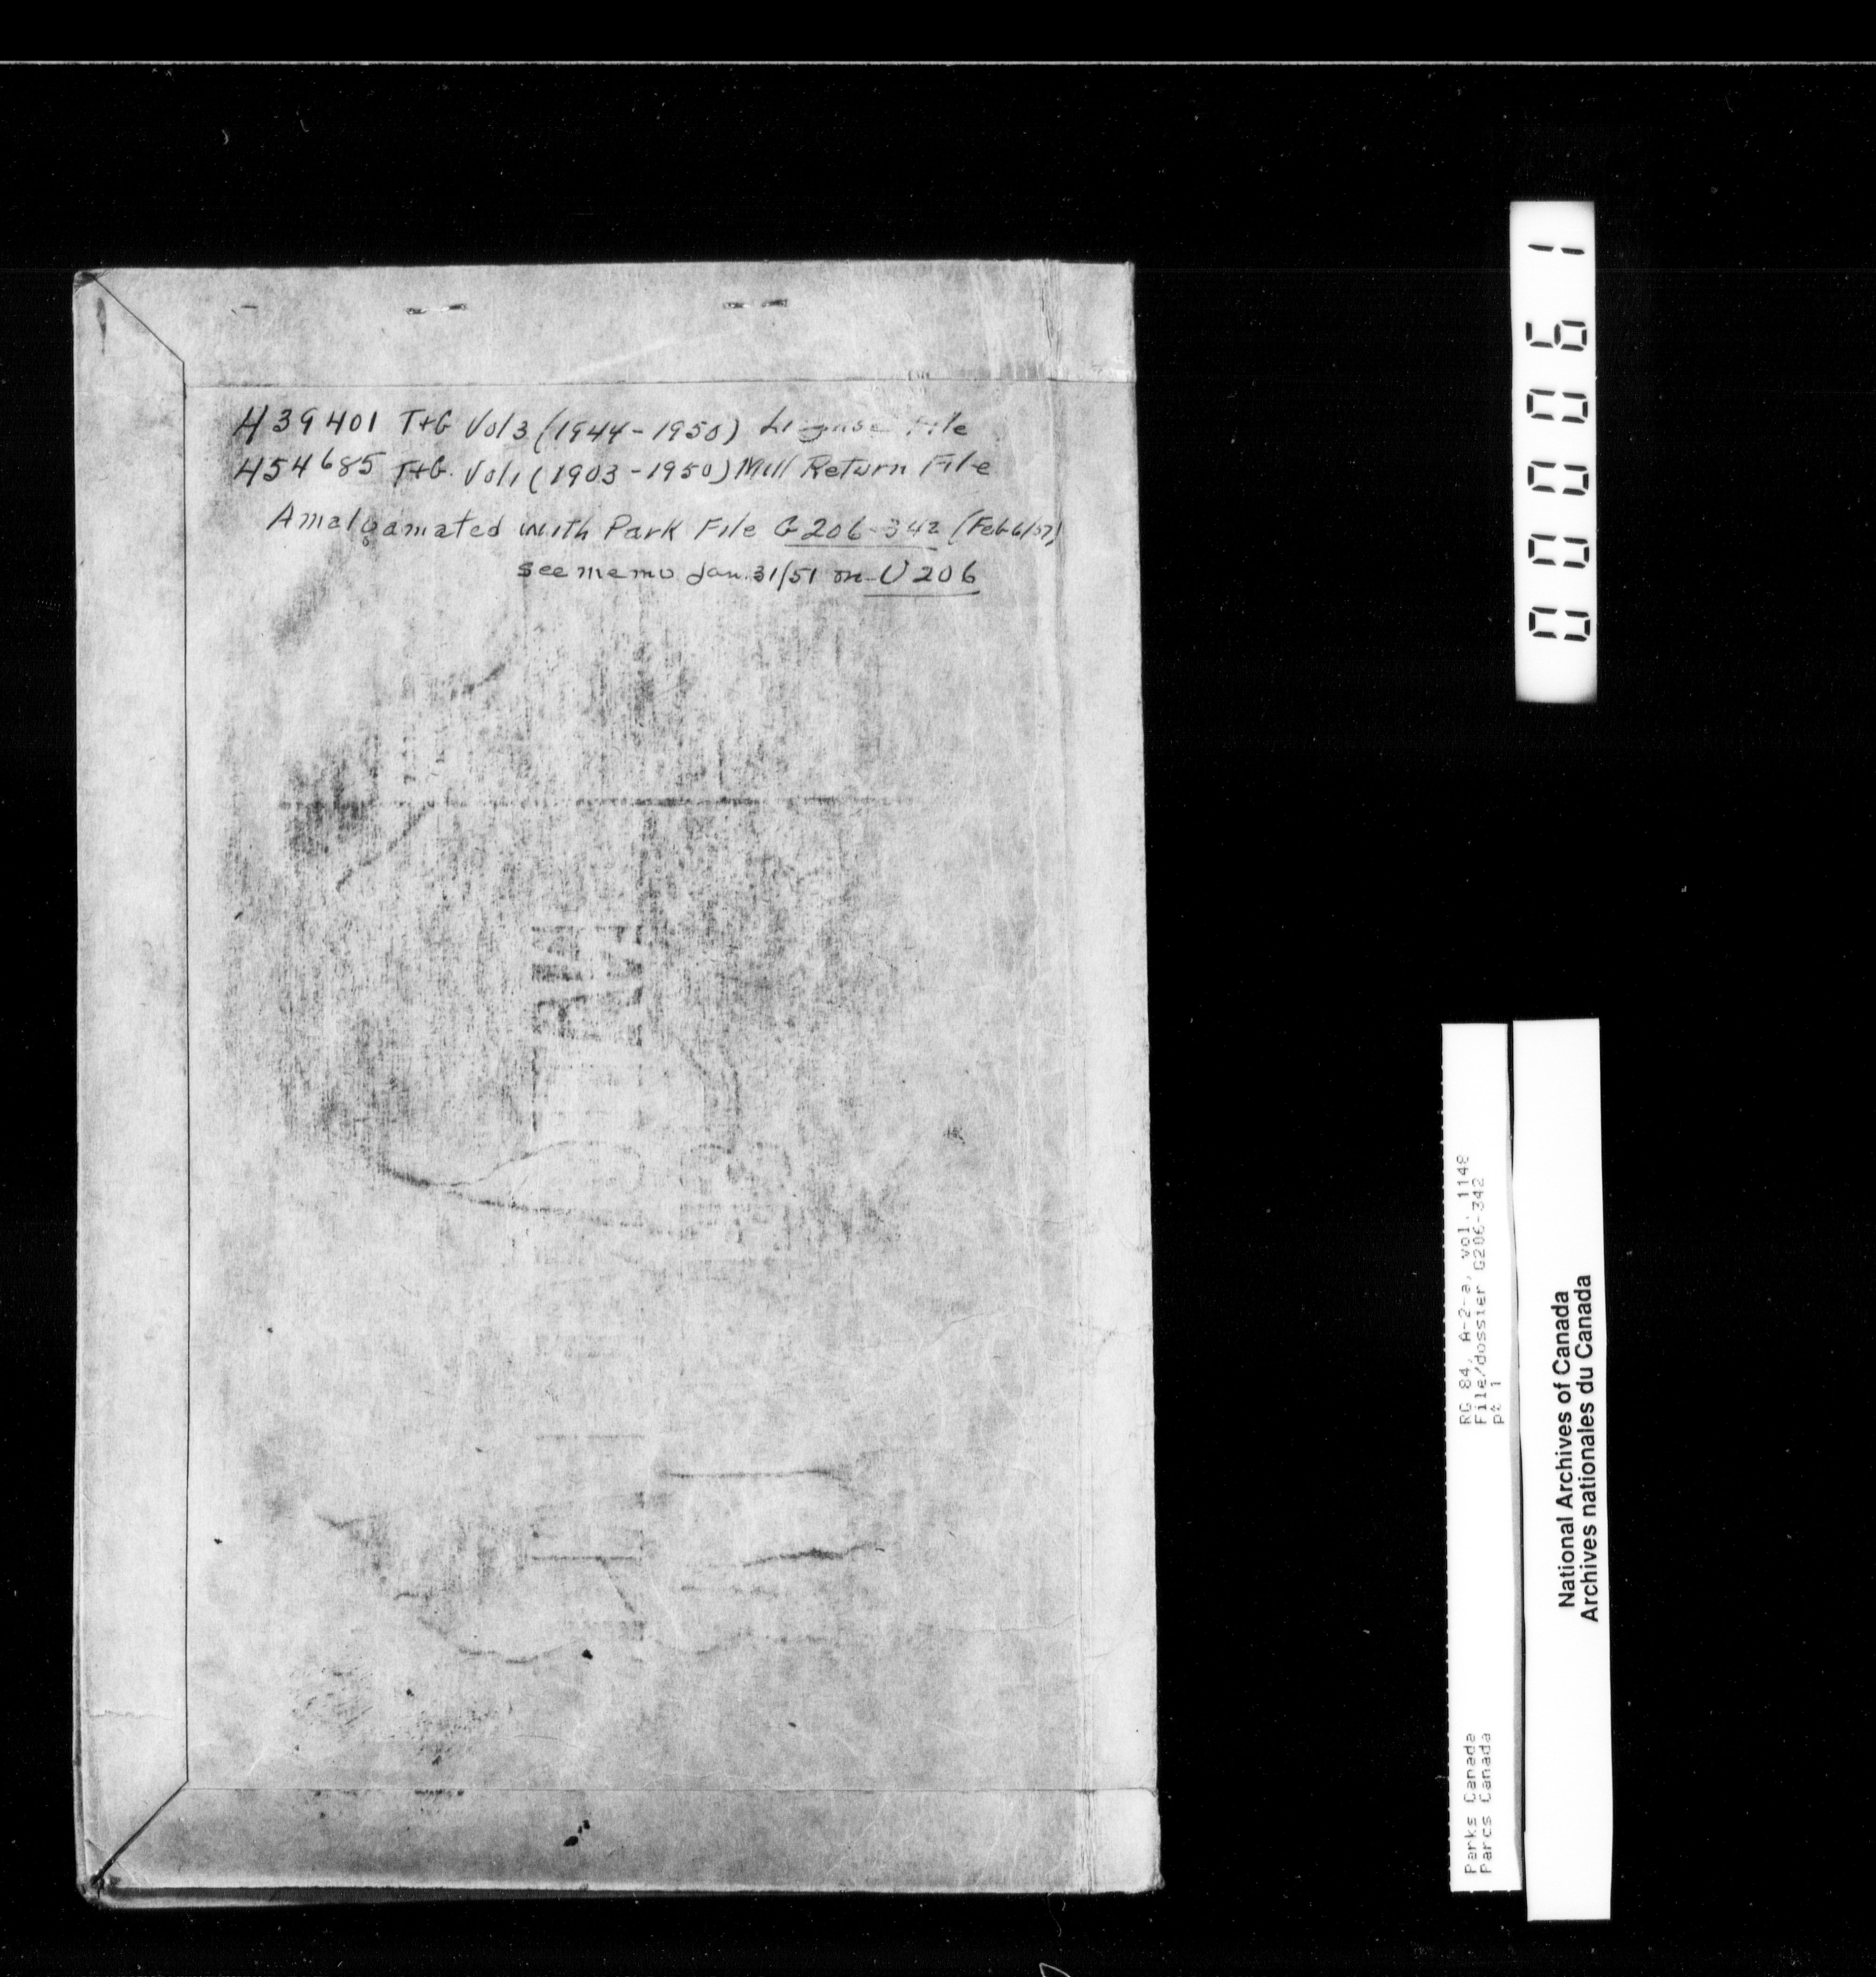 H39401 T+G Vol 3 (1944-1950) License File
H54685 T+G. Vol. 1 (1903-1950) Mill Return File
Amalgamated with Park File G206-342 (Feb 6/57)
see memo Jan. 31/51 on U206
000061
RG 84, A-2-a, vol. 1148
File/dossier G206-342
pt 1
Parks Canada
Parcs Canada
National Archives of Canada
Archives nationales du Canada